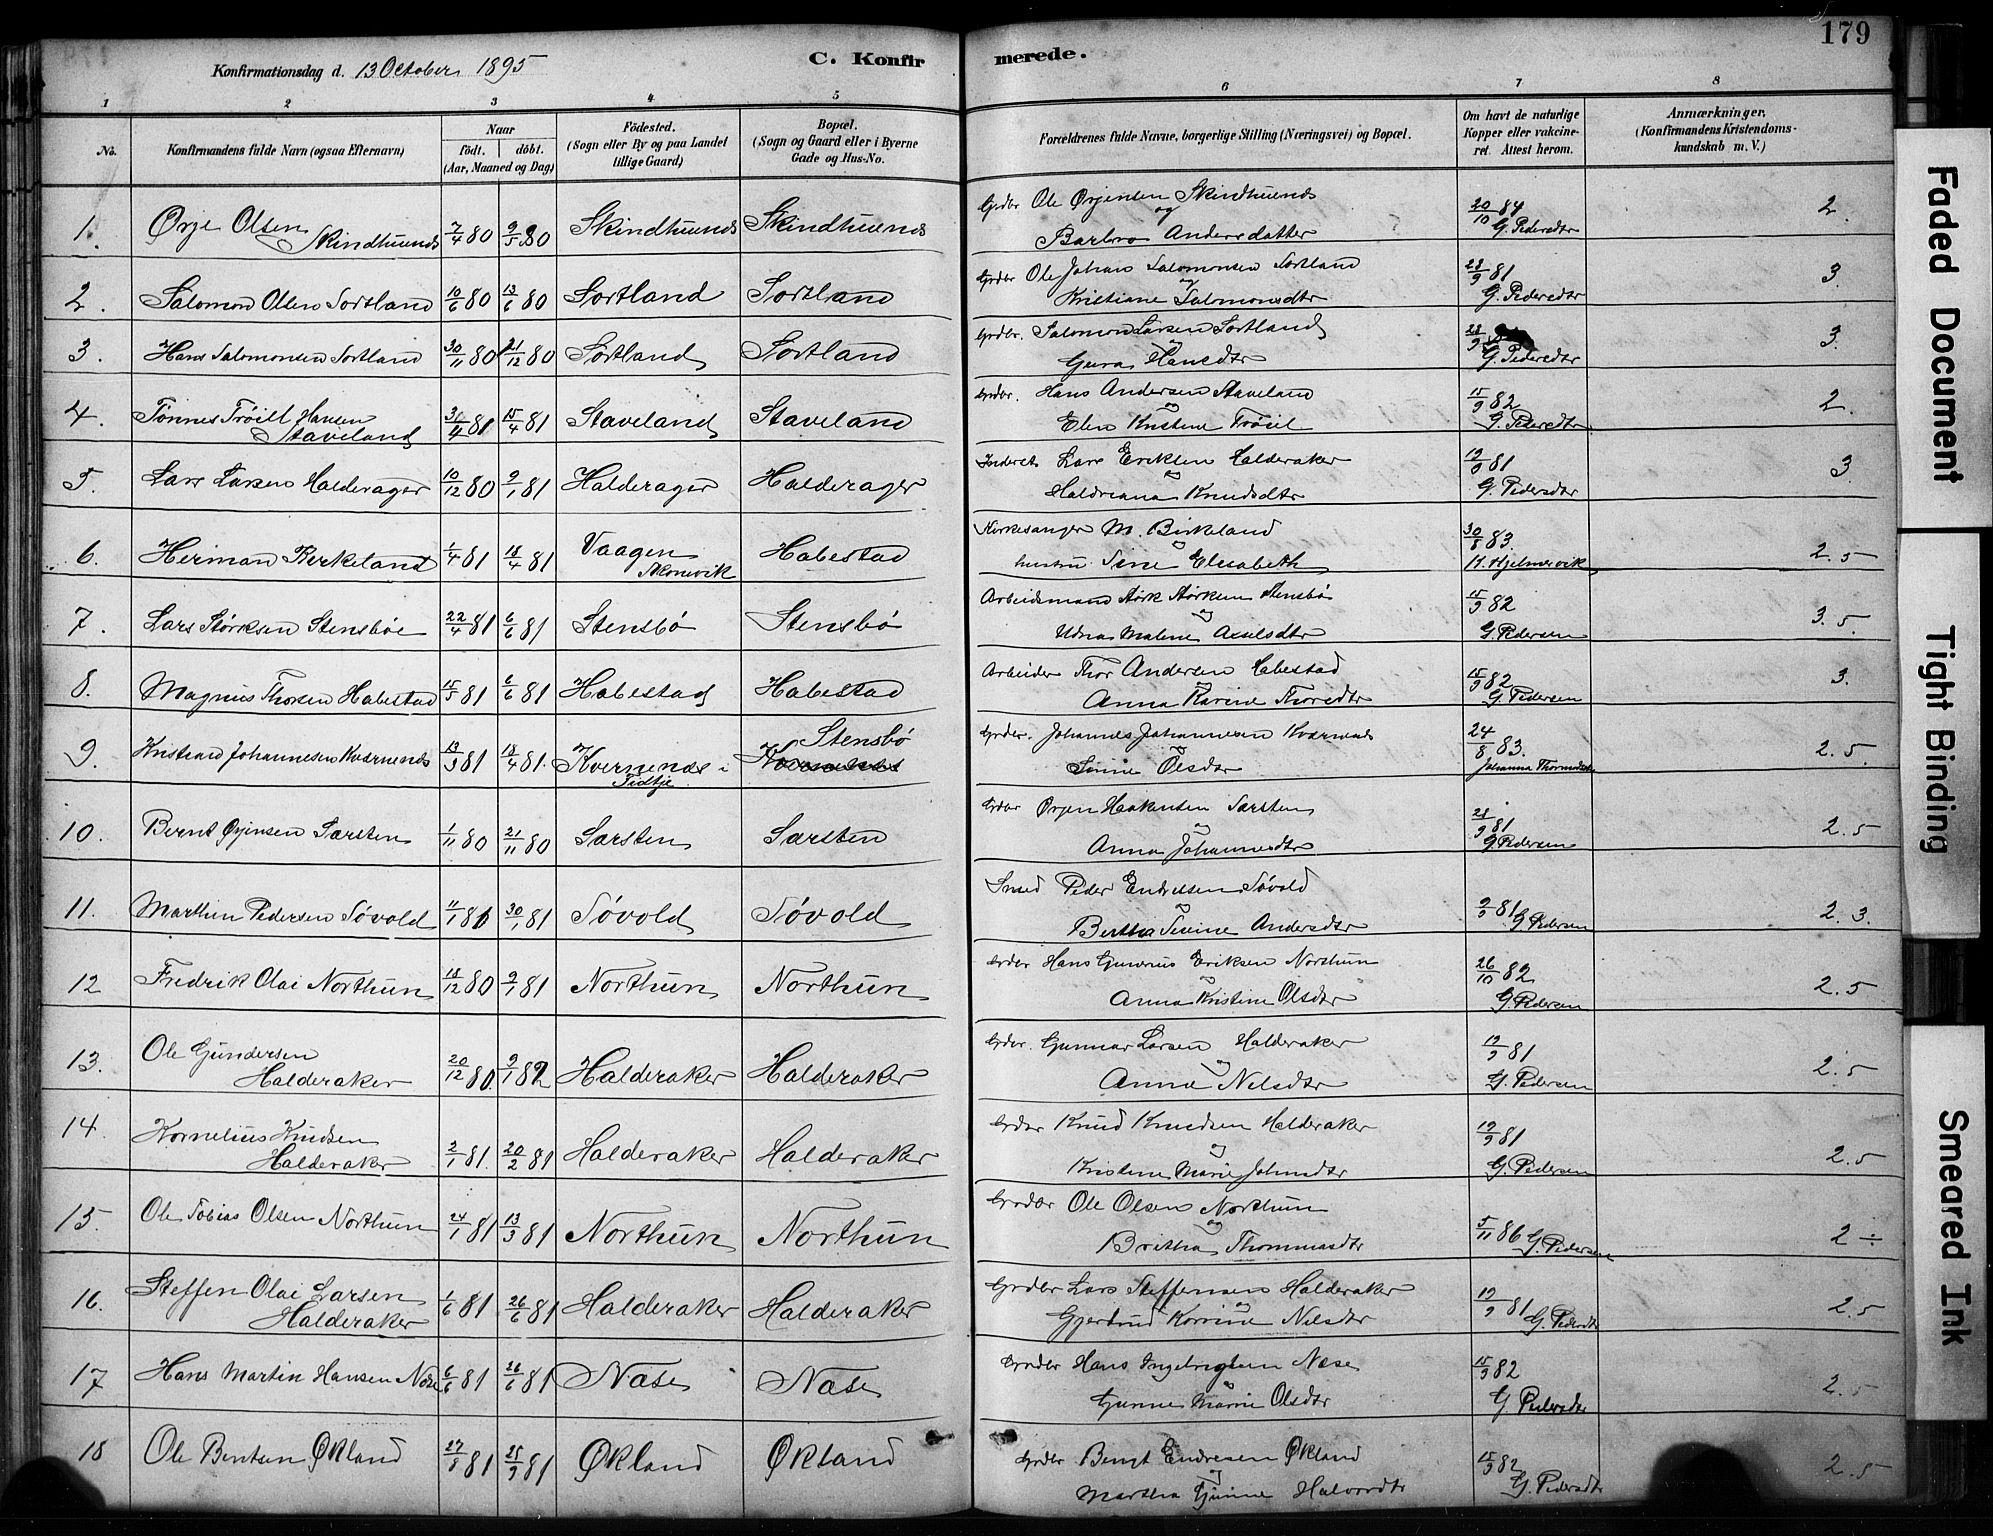 179
Konfirmationsdag d. 13 October 1895
C. Konfirmerede.
1 2 3 4 5 6 7 8
No.
Konfirmandens fulde Navn (ogsaa Efternavn)
Naar
født. døbt.
(Aar, Maaned og Dag)
Fødested.
(Sogn eller By og paa Landet
tillige Gaard)
Bopæl.
(Sogn og Gaard eller i Byerne
Gade og Hus-No.
Forældrenes fulde Navne, borgerlige Stilling (Næringsvei) og Bopæl.
Om havt de naturlige
Kopper eller vakcine-
ret. Attest herom.
Anmærkninger.
(Konfirmandens Kristendoms-
kundskab m. V.)
1. Ørje Olsen Skindhuends 7/4 80 9/5 80 Skindhuends Skindhuends Grdbr Ole Ørjensen Skindhuends 20/10 84 2.
og
Barbro Andersdatter G. Pedersdtr
2. Salomon Olsen Sortland 10/6 80 13/6 80 Sortland Sortland Grdbr Ole Johan Salomonsen Sortland 28/9 81 3.
og
Kristiane Salomonsdtr G. Pedersdtr
3. Hans Salomonsen Sortland 30/11 80 21/12 80 Sortland Sortland Grdbr. Salomon Larsen Sortland 28/9 3.
og
Gura Hansdtr G. Pedersdtr
4. Tønnes Trøill Hansen Staveland 3/4 81 15/4 81 Staveland Staveland Grdbr. Hans Andersen Staveland 15/9 82 2.
og
Elen Kristine Trøil G. Pedersdtr
5. Lars Larsen Halderager 10/12 80 9/1 81 Halderager Halderager Inderst Lars Eriksen Halderaker 19/9 81 3.
og
Haldriana Knudsdtr G. Pedersdtr
6. Herman Berkeland 1/4 81 18/4 81 Vaagen Skonevik Habestad Kirkesanger M. Birkeland 30/8 83. 2.5
og
hustru Sine Elisabeth H. Hjelmervik
7. Lars Størksen Stensbøe 22/4 81 6/6 81 Stensbø Stensbø Arbeidsmand Størk Størksen Stensbø 15/9 82 3.5.
og
Udna Malene Axelsdtr G. Pedersen
8. Magnus Thorsen Habestad 15/5 81 6/6 81 Habestad Habestad Arbeider Thor Andersen Habestad 15/9 82 3.
og
Anna Karine Thorsdtr G. Pedersen
9. Kristian Johannesen Kvarnends 13/3 81 18/4 81. Kvernends i Fidtje Stensbø Grdbr. Johannes Johannesen Kvarnends 24/8 83. 2.5.
og
Sinne Olsdtr Johanna
10. Bernt Ørjensen Særsten 1/11 80 21/11 80 Særsten Særsten Grdbr Ørjen Haakensen Særsten 28/9 81 2.5
og
Anna Johannesdtr G. Pedersen
11. Marthin Pedersen Søvold 11/1 81 30/1 81 Søvold Søvold Smed Peder Endresen Søvold 9/9 81 2.3.
og
Bertha Serine Andersdtr G. Pedersen
12 Fredrik Olai Northun 18/12 80 9/1 81 Northun Northun Grdbr Hans Gunerius Eriksen Northun 26/10 82 2.5
og
Anna Kristine Olsdtr G. Pedersen
13. Ole Gundersen Halderaker 20/12 80. 9/1 82 Halderaker Halderaker Grdbr. Gunnar Larsen Halderaker 19/9 81 2.5
og
Anna Nelsdtr G. Pedersen
14. Kornelius Knudsen Halderaker 2/1 81. 20/2 81 Halderaker Halderaker Grdbr Knud Knudsen Halderaker 19/9 81 2.5
og
Kristine Marie Johnsdtr G. Pedersen
15. Ole Tobias Olsen Northun 24/1 81 13/3 81 Northun Northun Grdbr Ole Olsen Northun 5/11 86 2 ÷
og
Britha Thommasdtr G. Pedersen
16. Steffen Olai Larsen Halderaker 1/6 81 26/6 81 Halderaker Halderaker Grdbr Lars Steffensen Halderaker 19/9 81 2.5
og
Gjertrud Korrine Nelsdtr G. Pedersdtr
17 Hans Martin Hansen Næse 6/6 81 26/6 81 Næse Næse Grdbr Hans Ingebrigtsen Næse 15/9 82 2.5
og
Gunne Marie Olsdtr G. Pedersdtr
18 Ole Bentsen Økland 27/8 81 25/9 81 Økland Økland Grdbr Bengt Endresen Økland 15/9 82 2.5
og
Martha Gjurine Halvordtr G. Pedersdtr
Faded Document
Tight Binding
Smeared Ink